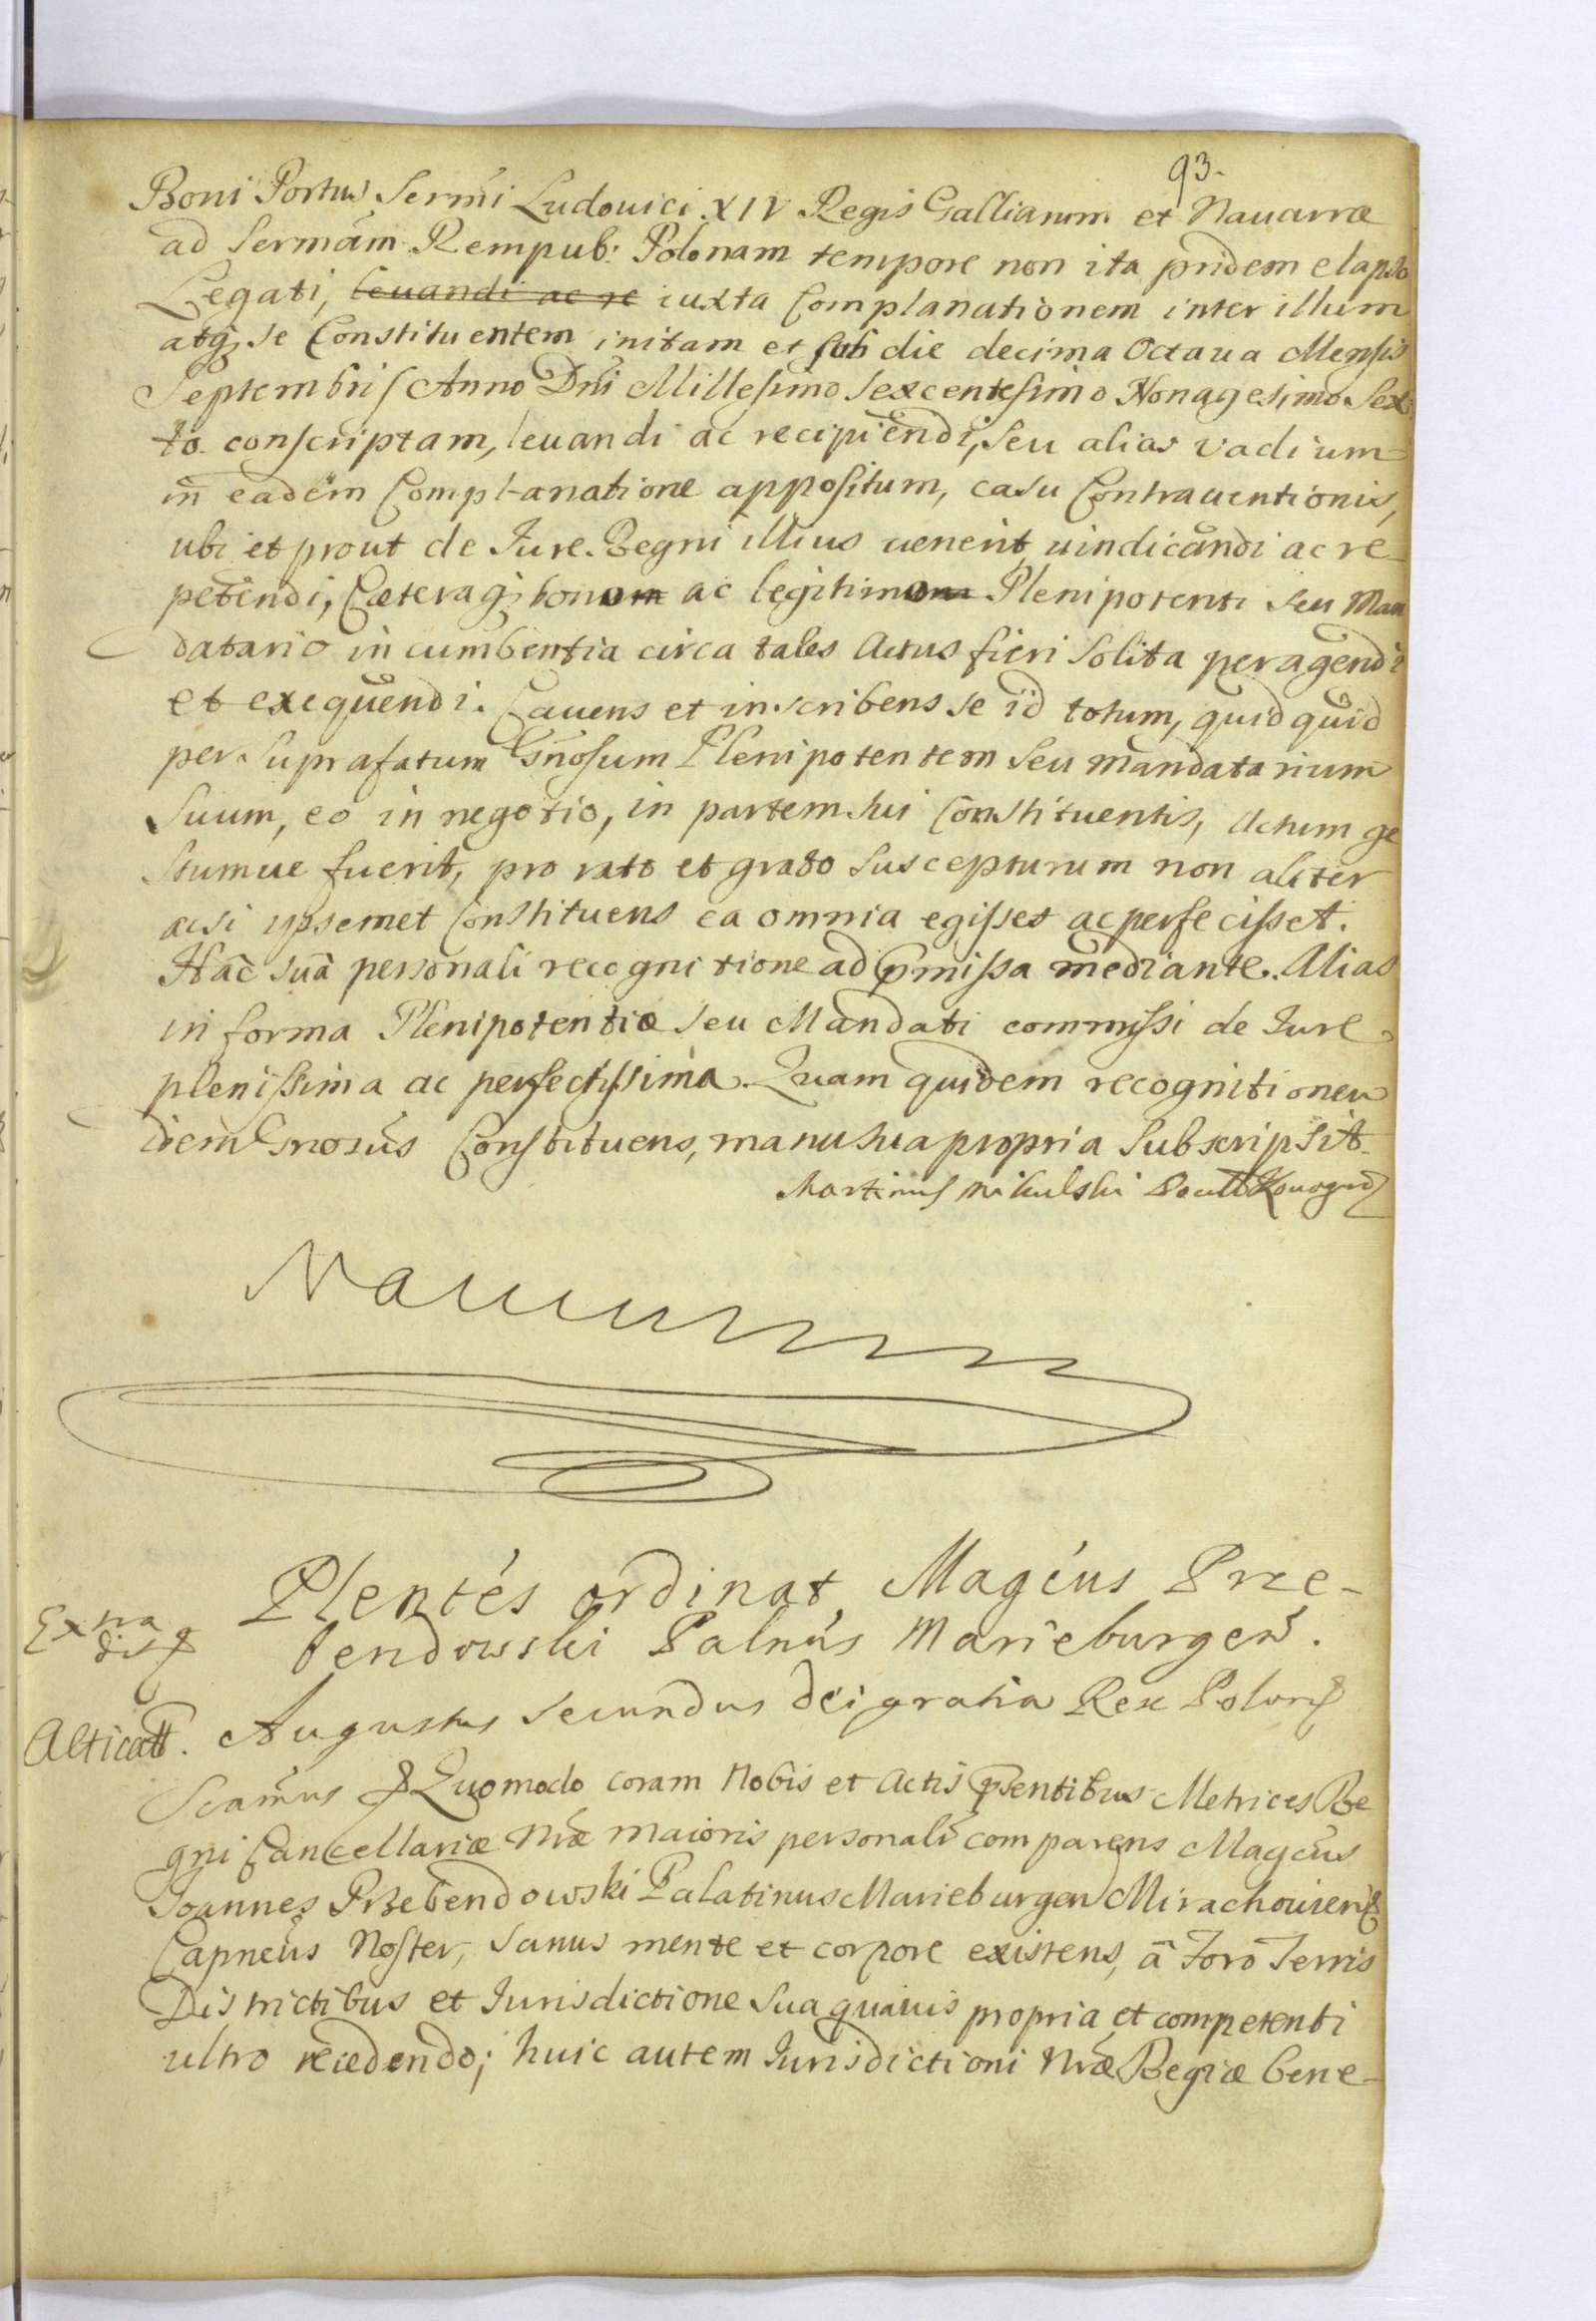 93.
Boni Portus Sermi Ludouici XIV Regis Galliarum et Nauarræ
ad Sermam Rempub: Polonam tempore non ita pridem elapso
Legati, leuandi ac re iuxta Complanationem inter illum
atq3 se Constituentem initam et sub die decima Octaua Mensis
Septembris Anno Dni Millesimo Sexcentesimo Nonagesimo Sex
to. conscriptam, leuandi ac recipiendi, seu alias vadium
in eadem Complanatione appositum, casu Contrauentionis,
ubi et prout de Jure Regni illius uenerit uindicandi ac re
petendi, Cæteraq3 bono ac legitimo Plenipotenti seu Man
datario incumbentia circa tales Actus fieri solita peragendi
et exequendi. Cauens et inscribens se id totum, quidquid
per suprafatum Gnosum Plenipotentem seu mandatarium
suum, eo in negotio, in partem sui Constituentis, actum ge
stumue fuerit, pro rato et grato suscepturum non aliter
acsi ipsemet Constituens ea omnia egisset ac perfecisset.
Hac sua personali recognitione ad pmissa mediante. Alias
in forma Plenipotentiæ seu Mandati commissi de Jure
plenissima ac perfectissima. Quam quidem recognitionem
idem Gnosus Constituens, manu sua propria subscripsit.
Martinus Mikulski
Plentes ordinat Magcus Prze-
bendowski Palnus Marieburgen.
Extra
dit
Alticatt. Augustus Secundus Dei gratia Rex Polor
Scamus Quomodo coram Nobis et Actis psentibus Metrices Re
gni Cancellariæ Nræ maioris personalr comparens Magcus
Joannes Przebendowski Palatinus Marieburgen Mirachouien
Capneus Noster, sanus mente et corpore existens, a Foro Terris
Districtibus et Jurisdictione sua quauis propria et competenti
ultro recedendo; huic autem Jurisdictioni Nræ Regiæ bene-